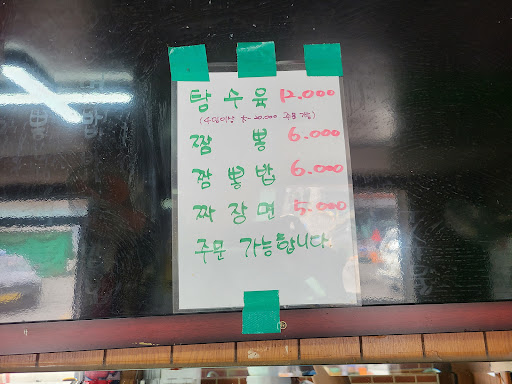 탕 수 육 12.000
(4인이상 大- 20.000 주문가능)
짬 뽕 6.000
짬 뽕 밥 6.000
짜 장 면 5.000
주문 가능합니다.